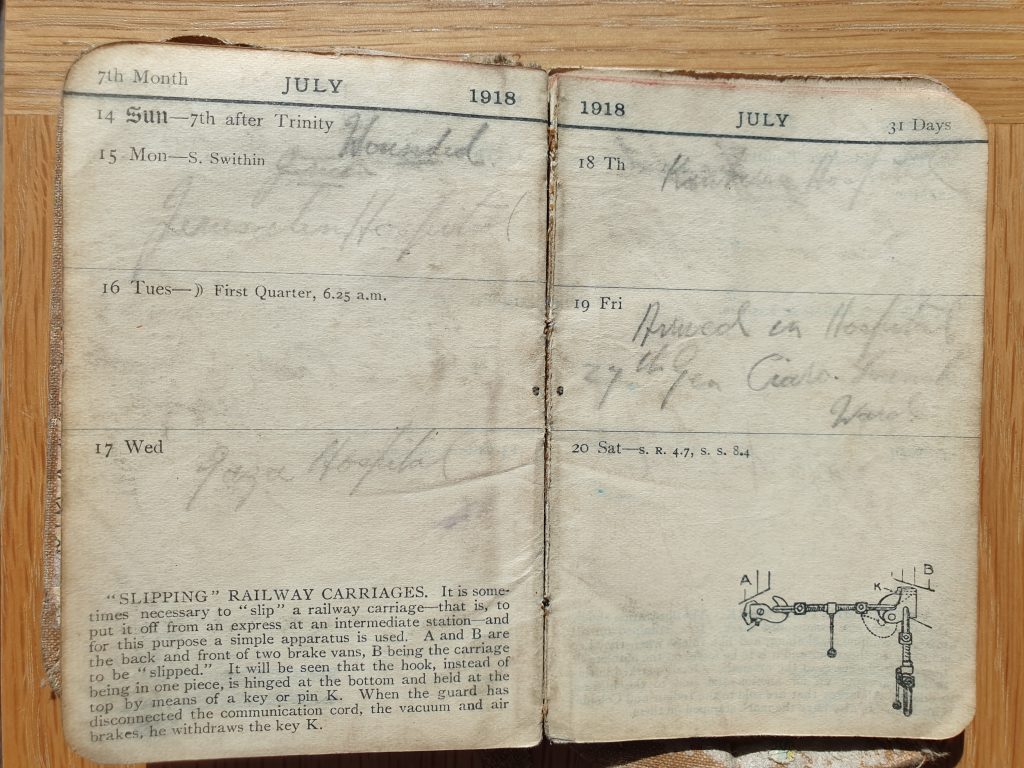 7th Month JULY 1918
14 Sun—7th after Trinity Wounded.
15 Mon—S. Swithin
Jerusalem Hospital
16 Tues—☽ First Quarter, 6.25 a.m.
17 Wed
Gaza Hospital
"SLIPPING" RAILWAY CARRIAGES. It is some-
times necessary to "slip" a railway carriage—that is, to
put it off from an express at an intermediate station—and
for this purpose a simple apparatus is used. A and B are
the back and front of two brake vans, B being the carriage
to be "slipped." It will be seen that the hook, instead of
being in one piece, is hinged at the bottom and held at the
top by means of a key or pin K. When the guard has
disconnected the communication cord, the vacuum and air
brakes, he withdraws the key K.
1918 JULY 31 Days
18 Th Hospital
19 Fri
Arrived in Hospital
27th Gen Cairo.
Ward
20 Sat—S. R. 4.7, S. S. 8.4
A K B